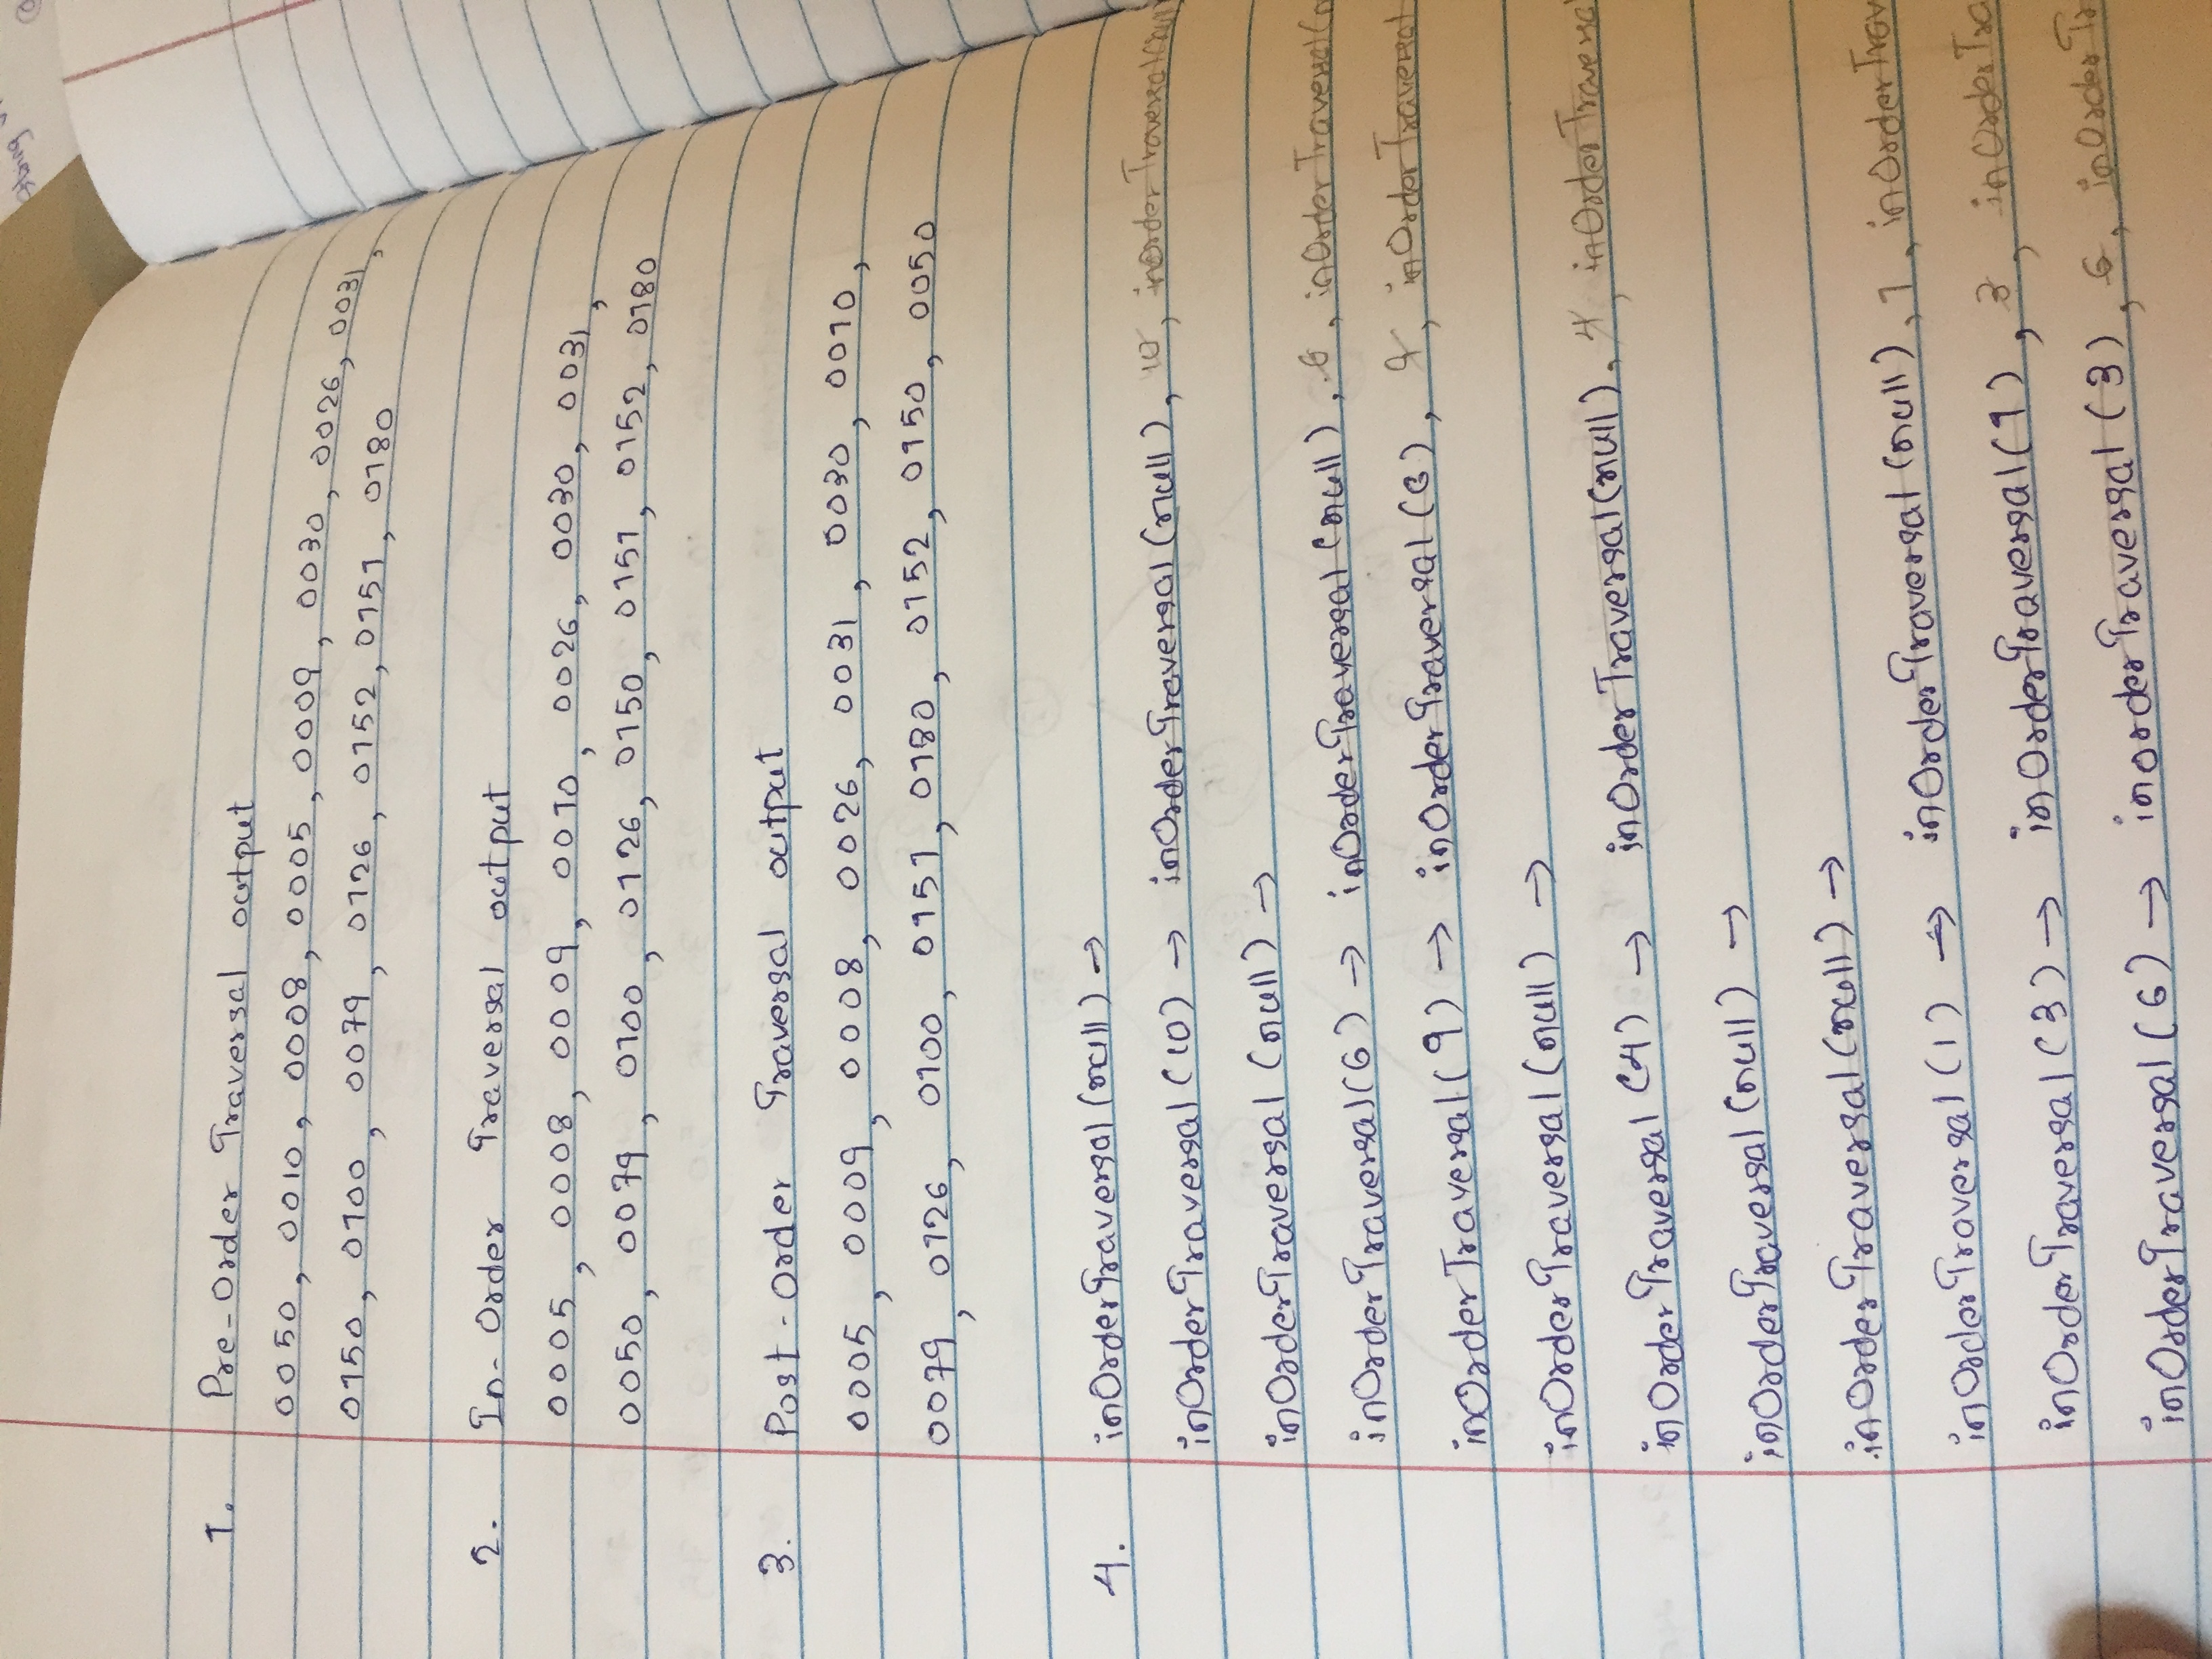 string
1. Pre-Order Traversal output
0050, 0010, 0008, 0005, 0009, 0030, 0026, 0031,
0150, 0100, 0079, 0126, 0152, 0151, 0180
2. In-Order Traversal output
0005, 0008, 0009, 0010, 0026, 0030, 0031,
0050, 0079, 0100, 0126, 0150, 0151, 0152, 0180
3. Post-Order Traversal output
0005, 0009, 0008, 0026, 0031, 0030, 0010,
0079, 0126, 0100, 0151, 0180, 0152, 0150, 0050
4. inOrderTraversal(null) →
inOrderTraversal(10) → inOrderTraversal(null), 10, inOrderTraversal(null
inOrderTraversal(null) →
inOrderTraversal(6) → inOrderTraversal(null), 6, inOrderTraversal(n
inOrderTraversal(9) → inOrderTraversal(6), 9, inOrderTraversal
inOrderTraversal(null) →
inOrderTraversal(4) → inOrderTraversal(null), 4, inOrderTraversal
inOrderTraversal(null) →
inOrderTraversal(null) →
inOrderTraversal(1) → inOrderTraversal(null), 1, inOrderTrav
inOrderTraversal(3) → inOrderTraversal(1), 3, inOrderTra
inOrderTraversal(6) → inorderTraversal(3), 6, inOrderTr